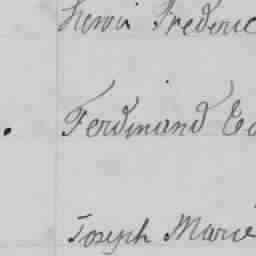 Henri Frederic
Ferdinand Ed
Joseph Marie